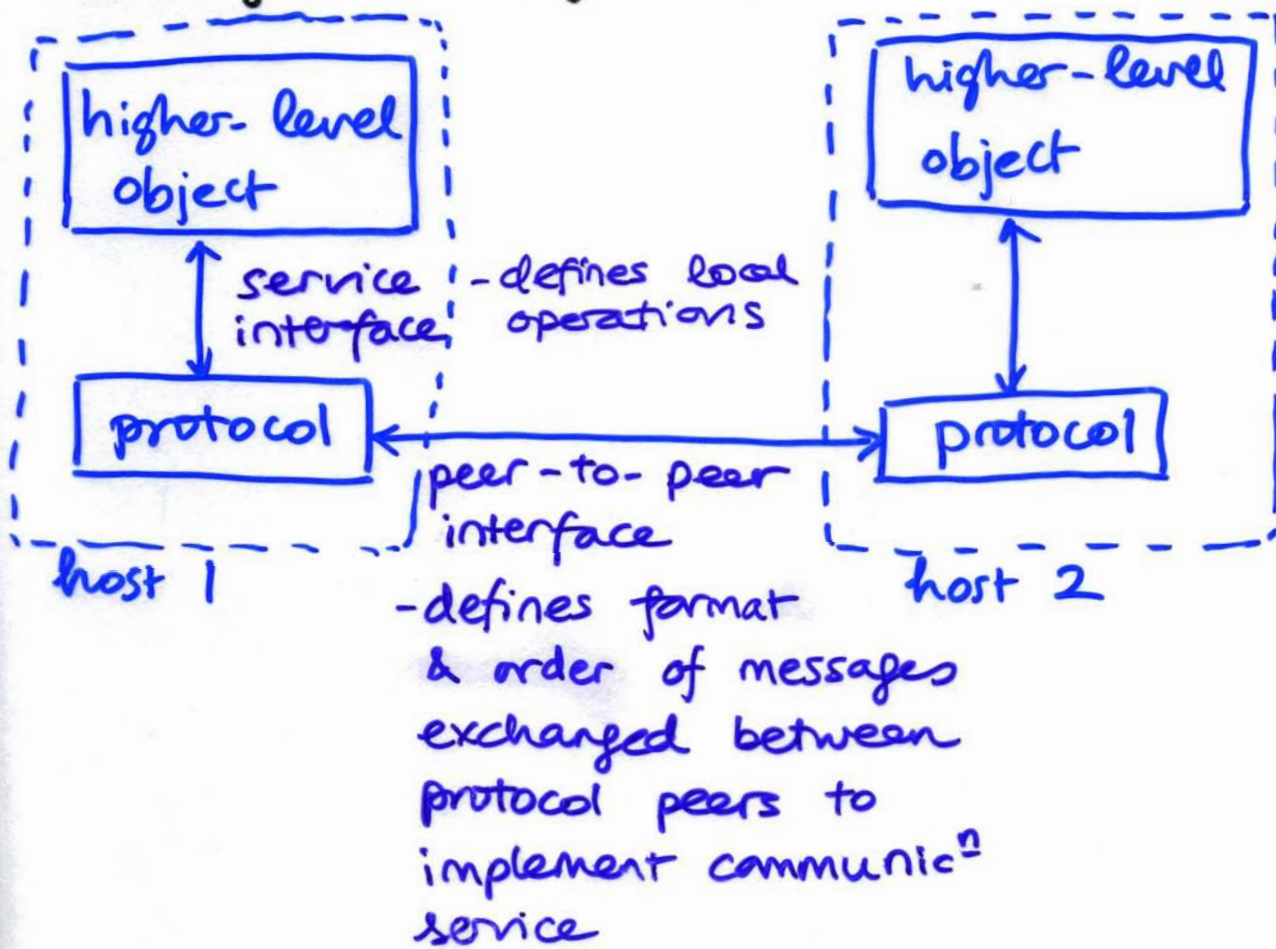 higher-level
object
higher-level
object
service
interface
-defines local
operations
protocol
protocol
peer-to-peer
interface
host 1
host 2
-defines format
& order of messages
exchanged between
protocol peers to
implement communicⁿ
service